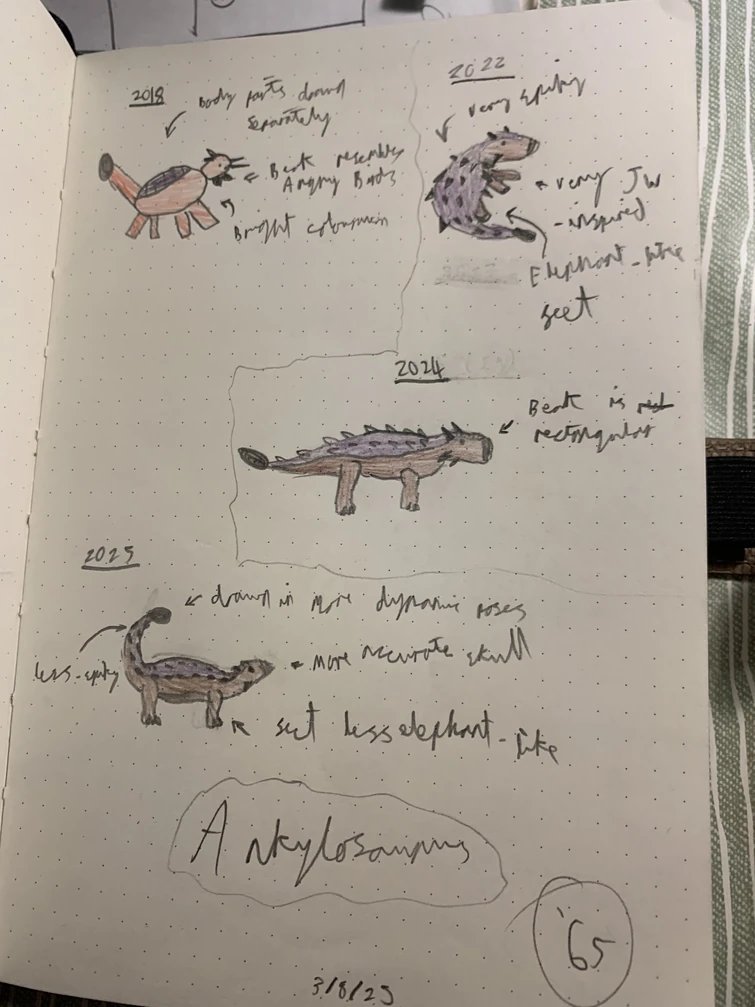 2018
Body parts drawn
separately
Beak resembles
Angry Birds
Bright colouration
2022
very spiky
very JW
-inspired
Elephant-like
feet
2024
Beak is
rectangular
2025
drawn in more dynamic poses
less-spiky
more accurate skull
feet less elephant-like
Ankylosaurus
'65
3/8/25